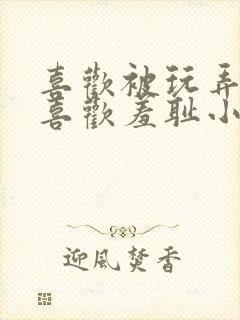 喜歡被玩弄
喜歡羞耻小
迎風焚香